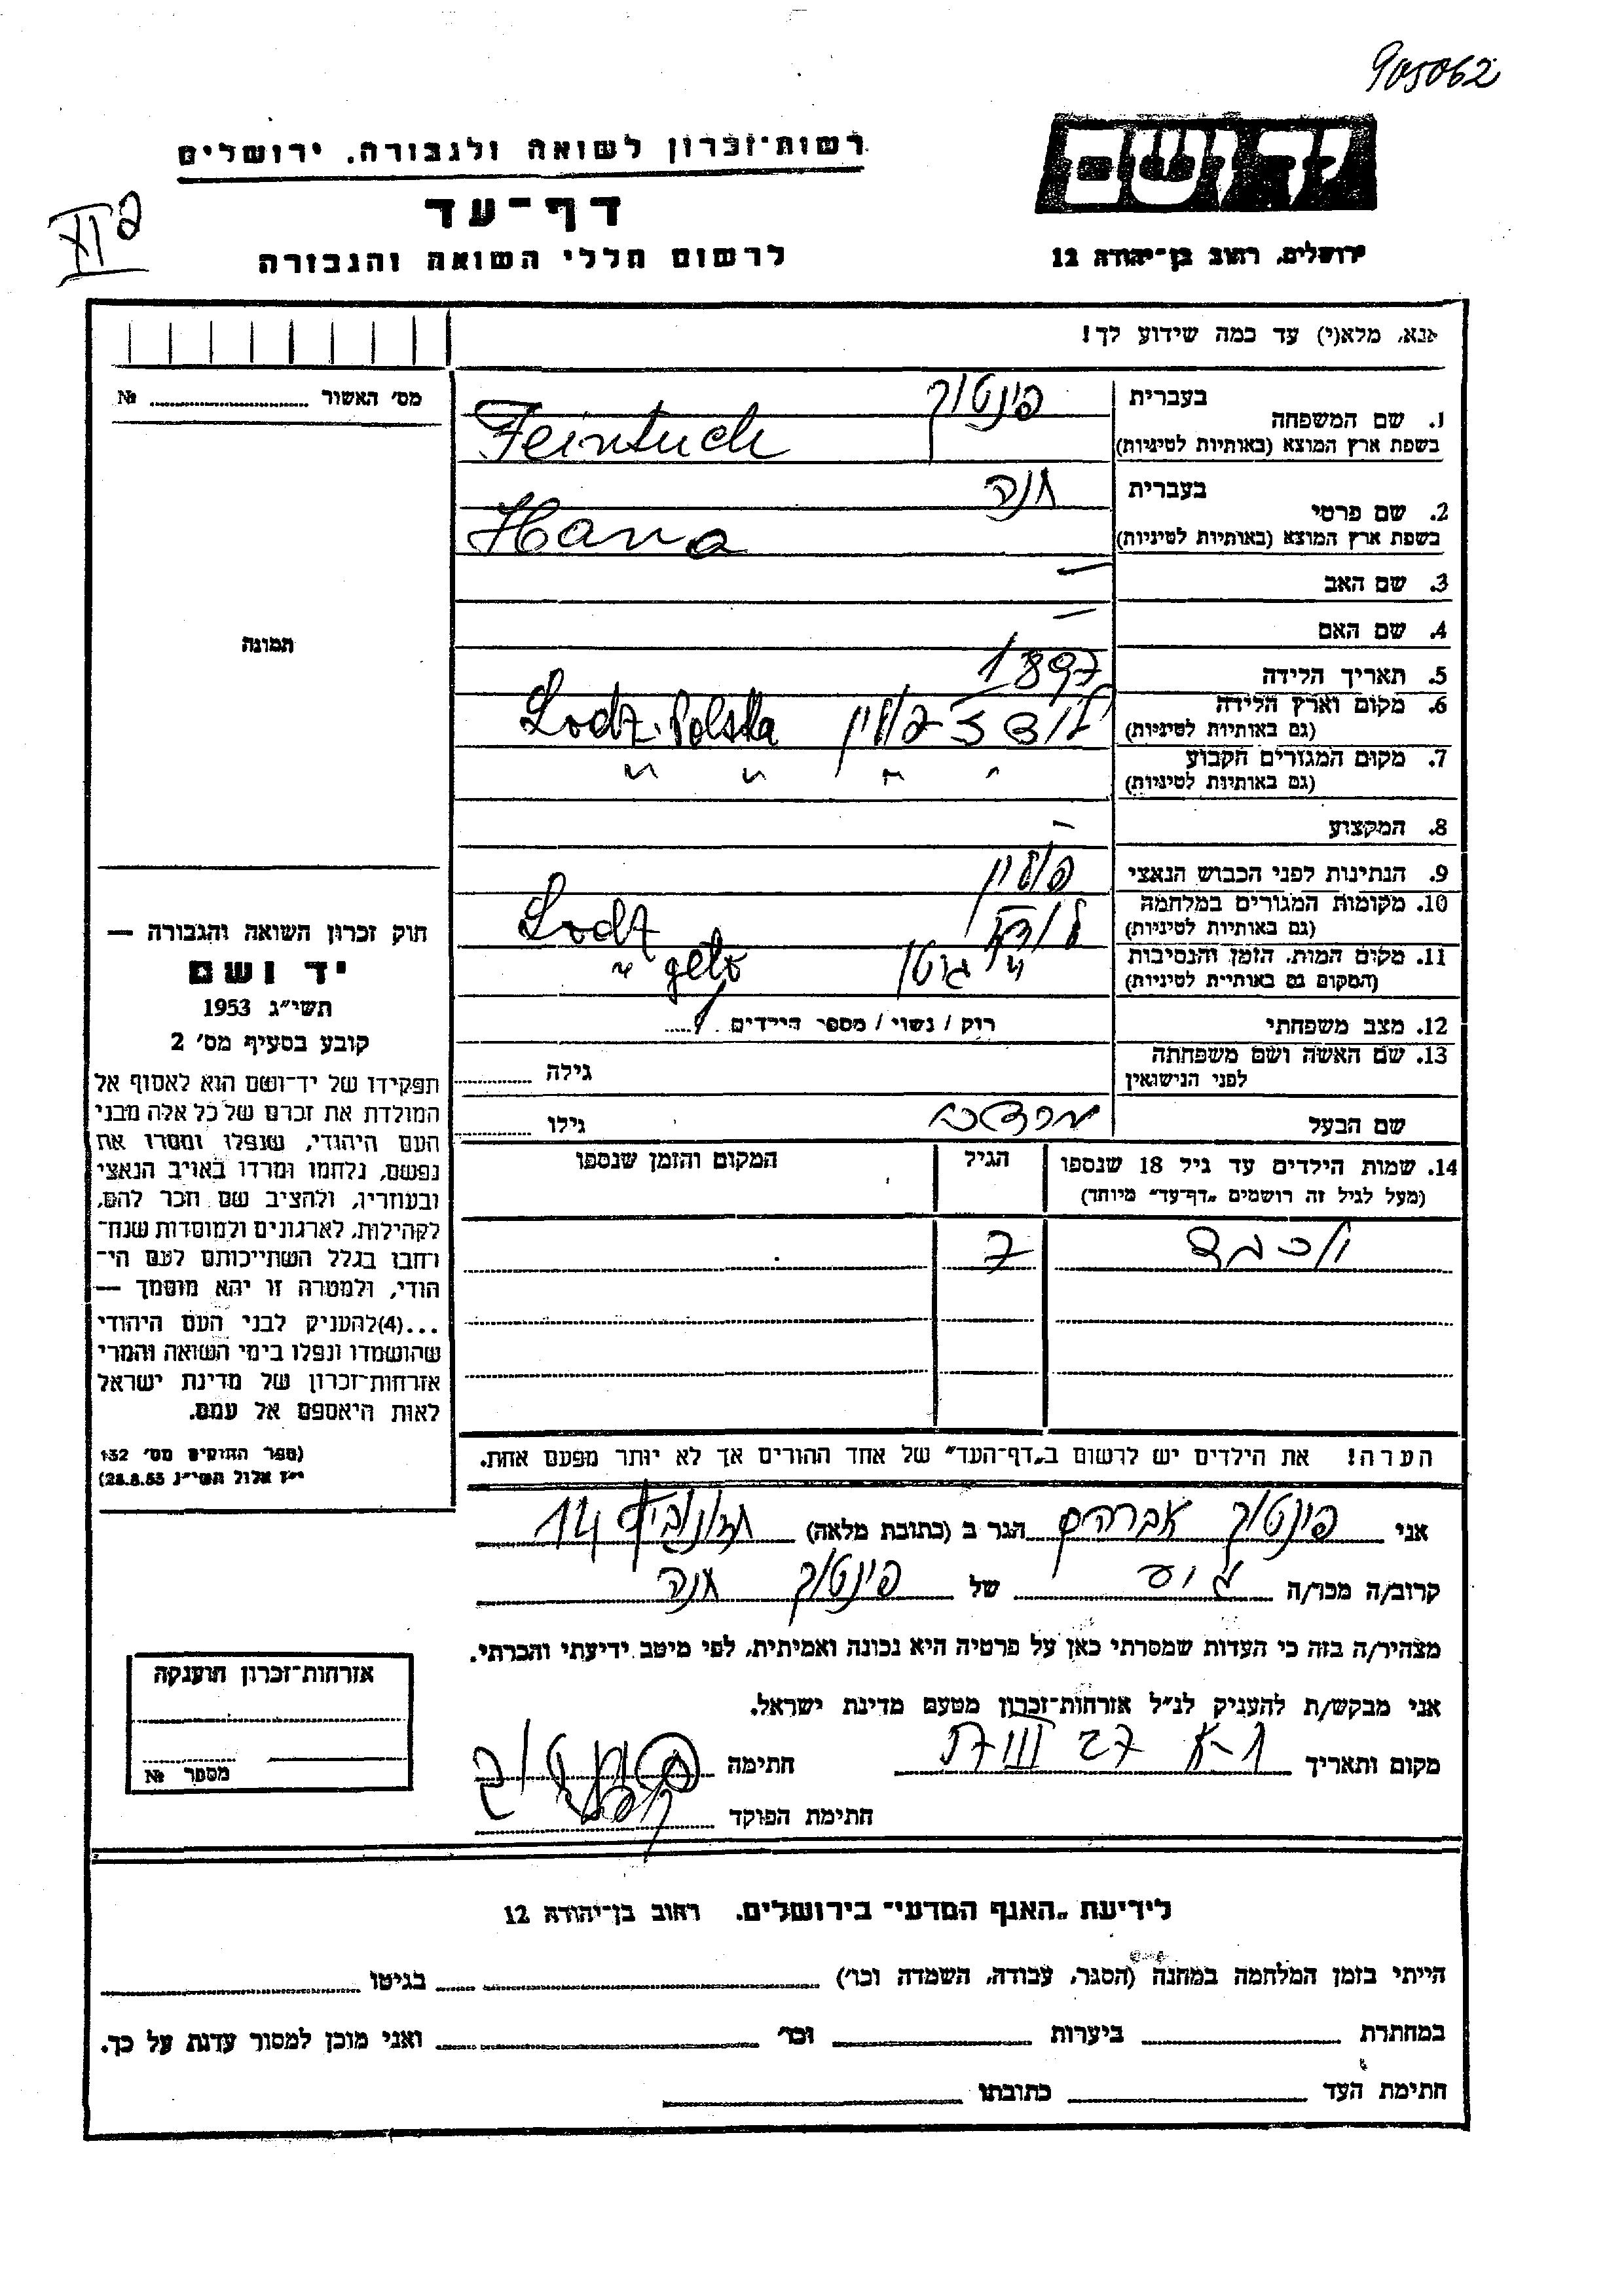 905062
יד ושם
רשות־זכרון לשואה ולגבורה, ירושלים
דף־עד
לרשום חללי השואה והגבורה
ירושלים, רחוב בן־יהודה 12
אנא, מלא(י) עד כמה שידוע לך!
מס׳ האשור № ........
בעברית פינטוך
1. שם המשפחה
בשפת ארץ המוצא (באותיות לטיניות) Feintuch
בעברית חנה
2. שם פרטי
בשפת ארץ המוצא (באותיות לטיניות) Hana
3. שם האב —
4. שם האם —
תמונה
5. תאריך הלידה 1897
6. מקום וארץ הלידה לודז פולין Lodz. Polska
(גם באותיות לטיניות)
7. מקום המגורים הקבוע " " " "
(גם באותיות לטיניות)
8. המקצוע —
9. הנתינות לפני הכבוש הנאצי פולין
10. מקומות המגורים במלחמה לודז Lodz
(גם באותיות לטיניות)
11. מקום המות, הזמן והנסיבות " גטו " geto
(המקום גם באותיות לטיניות)
12. מצב משפחתי רוק / נשוי / מספר הילדים
13. שם האשה ושם משפחתה גילה
לפני הנישואין
שם הבעל מרדכי גילו
14. שמות הילדים עד גיל 18 שנספו הגיל המקום והזמן שנספו
(מעל לגיל זה רושמים „דף־עד״ מיוחד)
יוכבד 7
הערה! את הילדים יש לרשום ב„דף־העד״ של אחד ההורים אך לא יותר מפעם אחת.
חוק זכרון השואה והגבורה —
יד ושם
תשי״ג 1953
קובע בסעיף מס׳ 2
תפקידו של יד־ושם הוא לאסוף אל
המולדת את זכרם של כל אלה מבני
העם היהודי, שנפלו ומסרו את
נפשם, נלחמו ומרדו באויב הנאצי
ובעוזריו, ולהציב שם וזכר להם,
לקהילות, לארגונים ולמוסדות שנח־
רבו בגלל השתייכותם לעם הי־
הודי, ולמטרה זו יהא מוסמך —
...(4)להעניק לבני העם היהודי
שהושמדו ונפלו בימי השואה והמרי
אזרחות־זכרון של מדינת ישראל
לאות היאספם אל עמם.
(ספר החוקים מס׳ 132
י״ז אלול תשי״ג 28.8.53)
אני פינטוך אברהם הגר ב (כתובת מלאה) 14
קרוב/ה מכר/ה של פינטוך חנה
מצהיר/ה בזה כי העדות שמסרתי כאן על פרטיה היא נכונה ואמיתית, לפי מיטב ידיעתי והכרתי.
אני מבקש/ת להעניק לנ״ל אזרחות־זכרון מטעם מדינת ישראל.
מקום ותאריך חתימה
חתימת הפוקד
אזרחות־זכרון הוענקה
מספר №
לידיעת „האגף המדעי״ בירושלים, רחוב בן־יהודה 12
הייתי בזמן המלחמה במחנה (הסגר, עבודה, השמדה וכו׳) בגיטו
במחתרת ביערות וכו׳ ואני מוכן למסור עדות על כך.
חתימת העד כתובתו